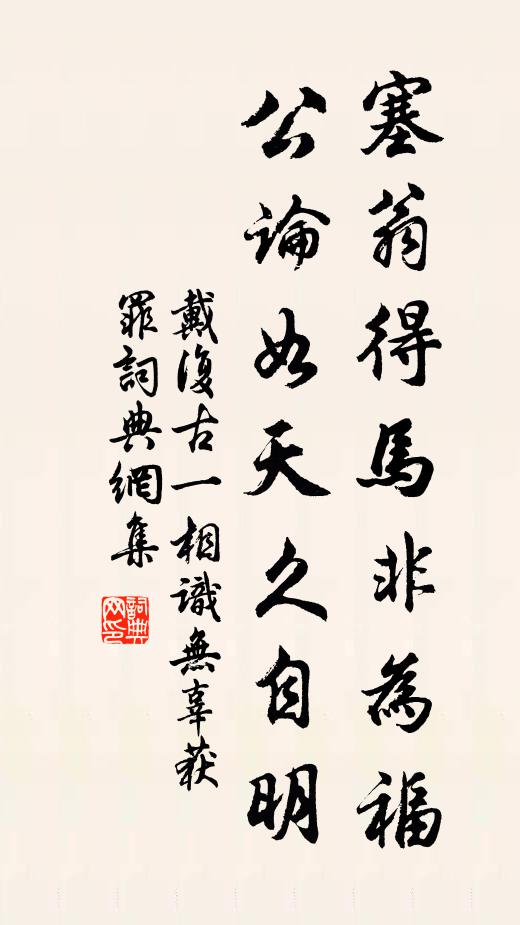 塞翁得馬非為福
公論如天久自明
戴復古一相識無辜获
罪詞典網集
詞典网印